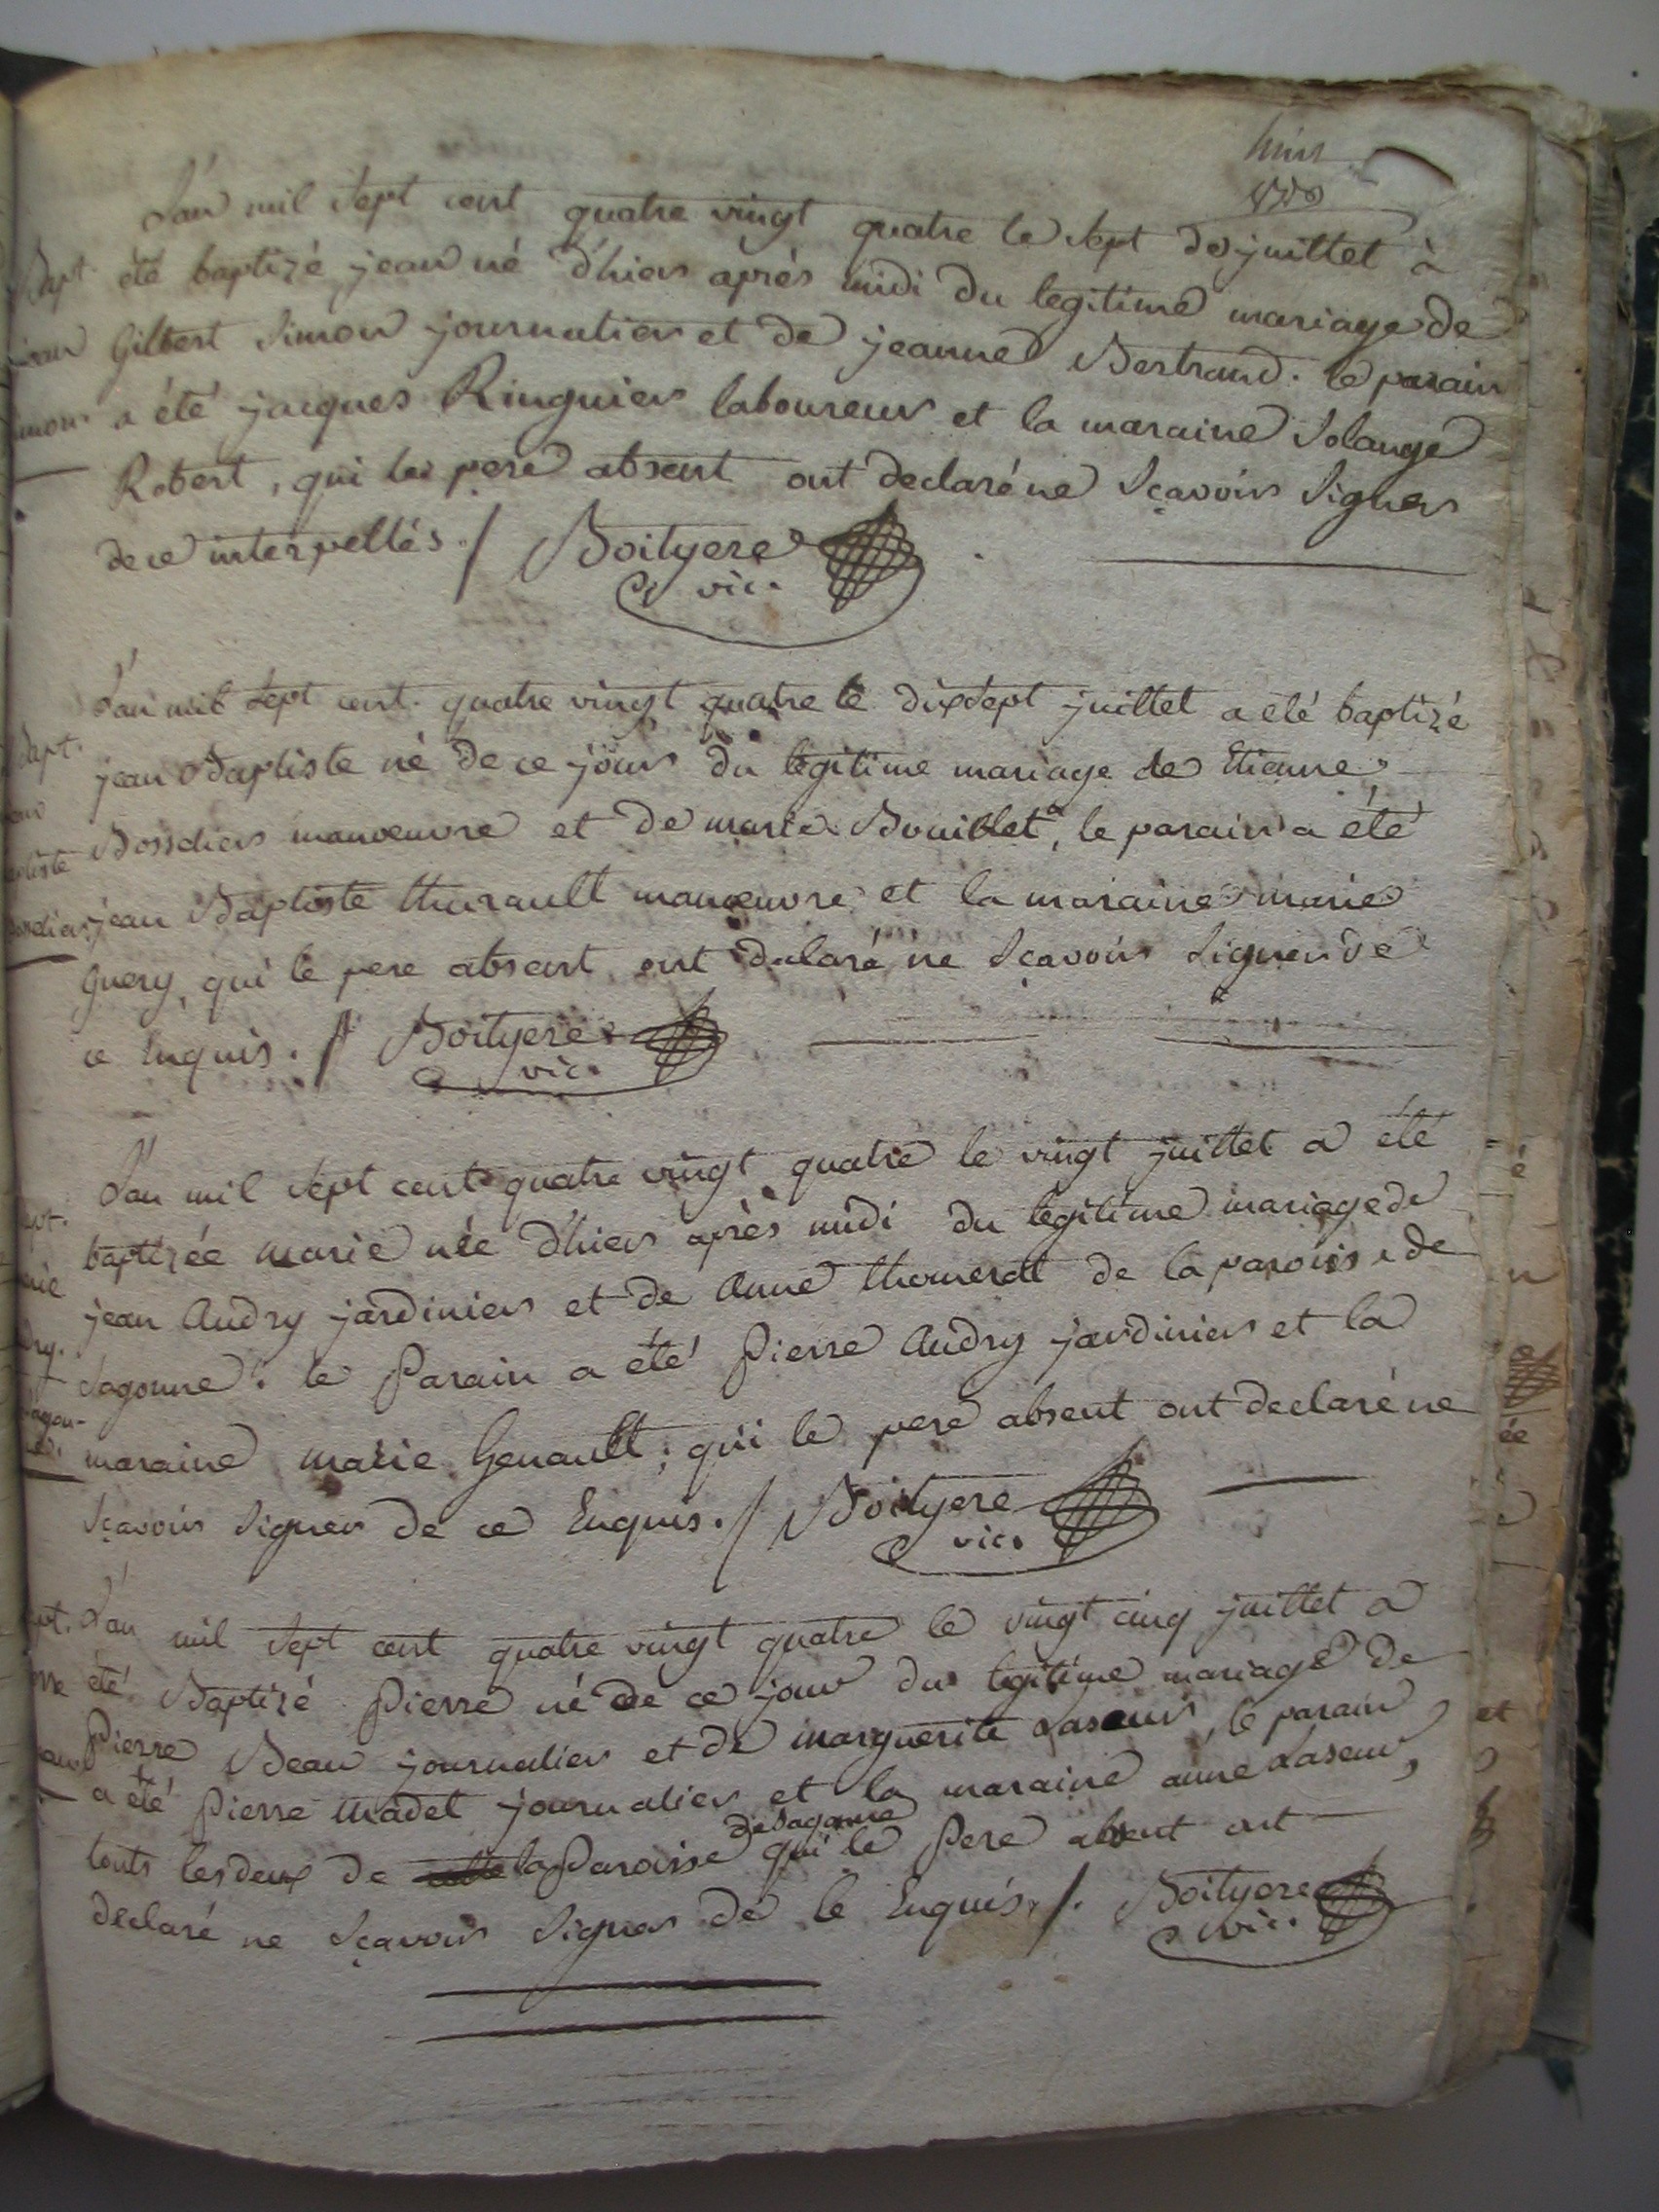 huit
L'an mil sept cent quatre vingt quatre le sept de juillet à
Bapt. été baptizé jean né d'hier après midi du legitime mariage de
Gilbert Simon journalier et de jeanne Bertrand. le parain
a été jacques Ringuier laboureur et la maraine Solange
Robert, qui le pere absent ont declaré ne sçavoir signer
de ce interpellés ./ Boityere
vic.
L'an mil sept cent quatre vingt quatre le dixsept juillet a été baptizé
Bapt. jean Baptiste né de ce jour du legitime mariage de Etienne
Bossdier manoeuvre et de marie Bouillet, le parain a été
jean Baptiste thurault manoeuvre et la maraine marie
Guery, qui le pere absent ont declaré ne sçavoir signer de
ce Enquis ./ Boityere
vic.
L'an mil sept cent quatre vingt quatre le vingt juillet a été
baptizée marie née d'hier après midi du legitime mariage de
jean Audry jardinier et de Anne thomerat de la paroisse de
Sagonne. le Parain a été Pierre Audry jardinier et la
maraine marie Genault; qui le pere absent ont declaré ne
sçavoir signer de ce Enquis ./ Boityere
vic.
L'an mil sept cent quatre vingt quatre le vingt cinq juillet a
été Baptizé Pierre né de ce jour du legitime mariage de
Pierre Beau journalier et de marguerite Laseur, le parain
a été Pierre Madet journalier et la maraine anne Laseur,
de Sagonne
touts les deux de la Paroisse qui le Pere absent ont
declaré ne sçavoir signer de le Enquis ./. Boityere
vic.